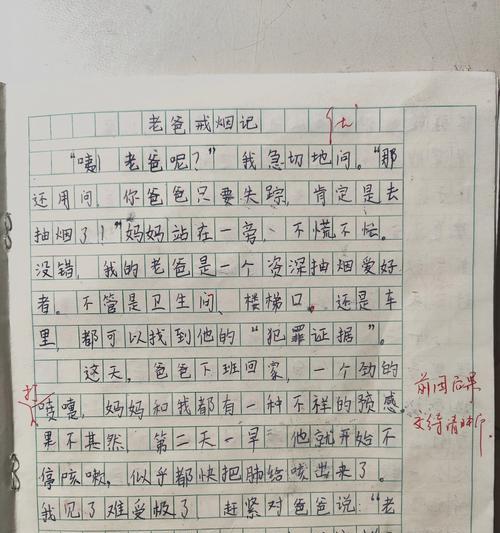 老爸戒烟记
优
"咦！老爸呢？"我急切地问。"那
还用问，你爸爸只要失踪，肯定是去
抽烟了！"妈妈站在一旁、不慌不忙。
没错，我的老爸是一个资深抽烟爱好
者。不管是卫生间、楼梯口，还是车
里，都可以找到他的"犯罪证据"。
这天，爸爸下班回家，一个劲的
打喷嚏，妈妈和我都有一种不祥的预感
果不其然，第二天一早，他就开始不
停咳嗽，似乎都快把肺给咳出来了。
我见了难受极了，赶紧对爸爸说："老
前因后果
交待清晰